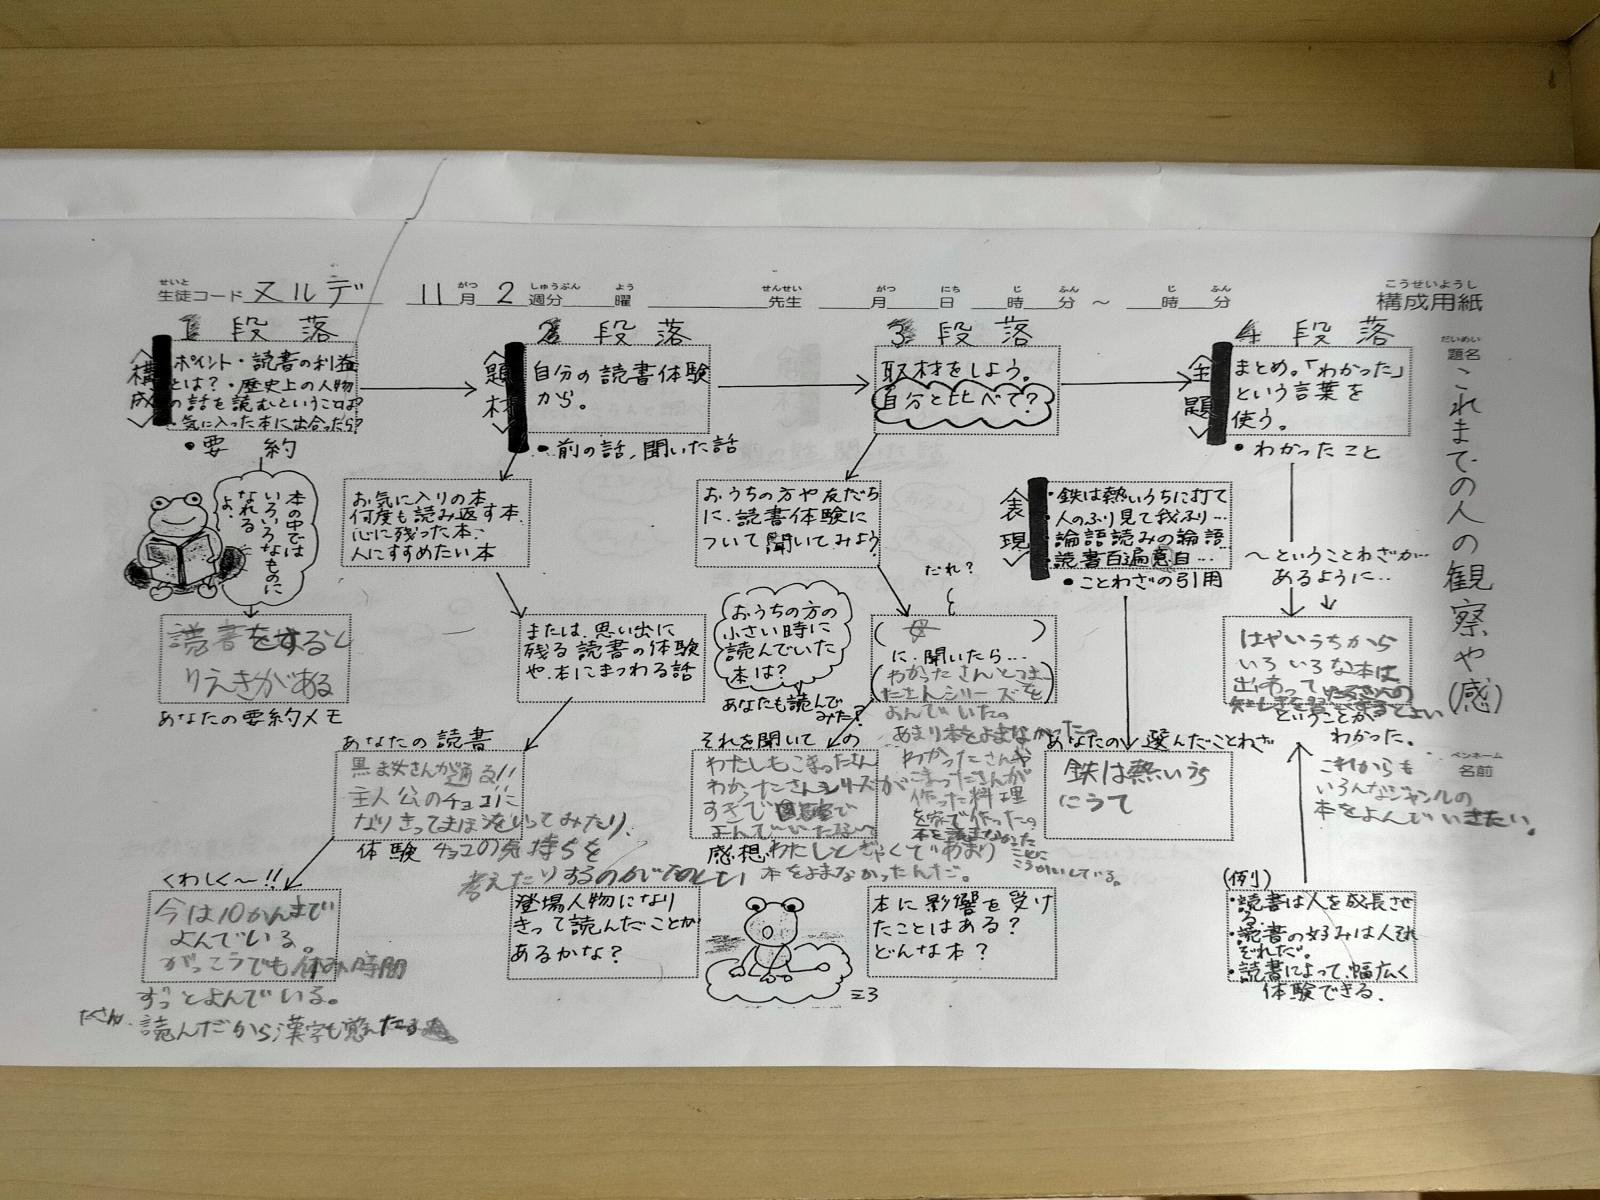 生徒コード ヌルデ 11月 2週分 曜 先生 月 日 時 分 ～ 時 分
構成用紙
題名 これまでの人の観察や(感)
ペンネーム
名前
1 段落
構成
ポイント・読書の利益
とは?・歴史上の人物
の話を読むということは?
・気に入った本に出合ったら?
・要 約
本の中では
いろいろなものに
なれる
よ.
読書をするとし
りえきがある
あなたの要約メモ
2 段落
題材
自分の読書体験
から。
・前の話,聞いた話
お気に入りの本.
何度も読み返す本.
心に残った本.
人にすすめたい本
または、思い出に
残る読書の体験
や、本にまつわる話
あなたの読書
黒ま女さんが通る!!
主人公のチョコに
なりきってまほうをいってみたり、
体験 チョコの気持ちを
考えたりするのがたのしい
くわしく～!!
今は10かんまで
よんでいる。
がっこうでも休み時間
ずっとよんでいる。
たくさん
読んだから漢字も
登場人物になり
きって読んだことが
あるかな?
3 段落
取材をしよう。
自分と比べて?
おうちの方や友だち
に、読書体験に
ついて聞いてみよう
だれ?
( 母 )
に、聞いたら…
わかったさんとこまっ
たさんシリーズを
よんでいたの
あまり本をよまなかったの
わかったさんや
こまったさんが
作った料理
を家で作ったの
本を読まなかった
ことに
こうかいしている。
おうちの方の
小さい時に
読んでいた
本は?
あなたも読んで
みた?
それを聞いての
わたしもこまったさん
わかったさんシリーズが
すきで
よんでいた
感想 わたしとぎゃくであまり
本をよまなかったんだ。
本に影響を受け
たことはある?
どんな本?
4 段落
主題
まとめ。「わかった」
という言葉を
使う。
・わかったこと
表現
・鉄は熱いうちに打て
・人のふり見て我ふり…
・論語読みの論語
・読書百遍意自…
・ことわざの引用
～ということわざが
あるように…
あなたの選んだことわざ
鉄は熱いうち
にうて
はやいうちから
いろいろな本は
出わって
ということが
わかった。
これからも
いろんなジャンルの
本をよんでいきたい。
(例)
・読書は人を成長させ
る.
・読書の好みは人それ
ぞれだ。
・読書によって、幅広く
体験できる.